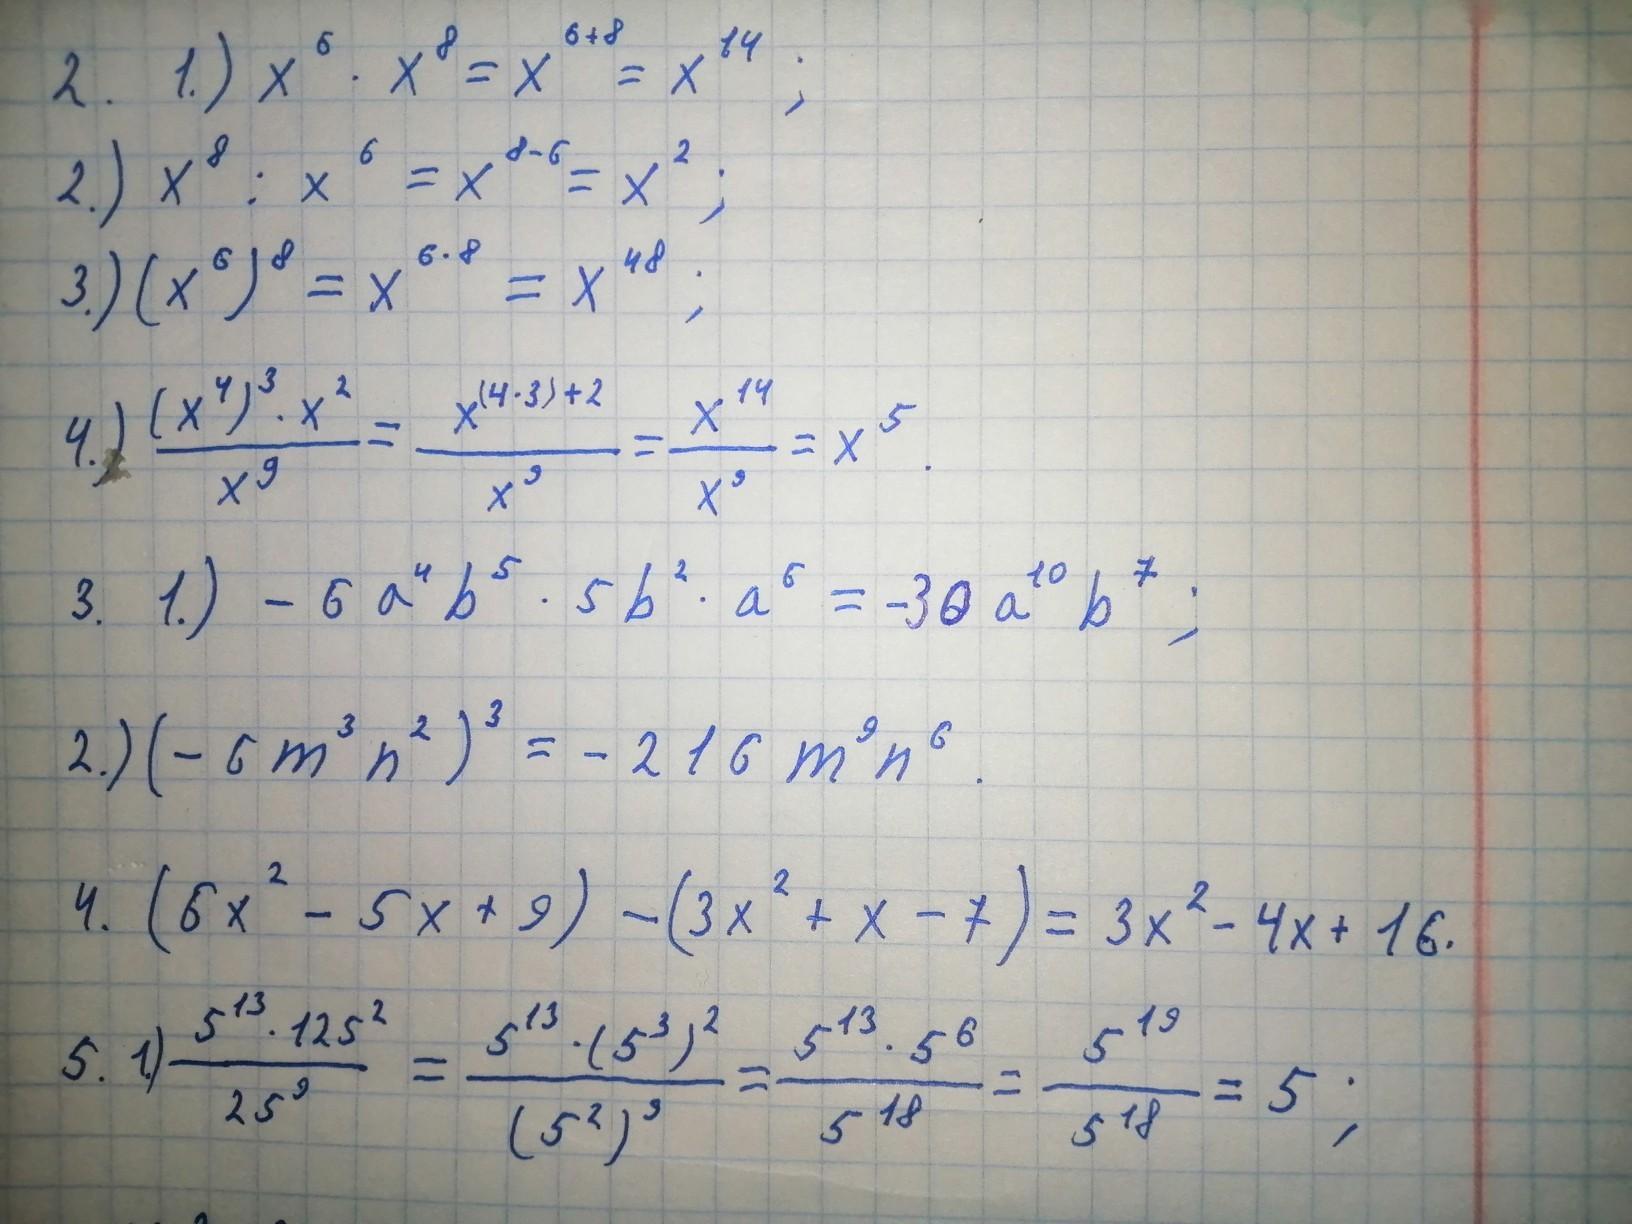 2. 1.) x⁶ · x⁸ = x⁶⁺⁸ = x¹⁴ ;
2.) x⁸ : x⁶ = x⁸⁻⁶ = x² ;
3.) (x⁶)⁸ = x⁶·⁸ = x⁴⁸ ;
4.) (x⁴)³ · x² / x⁹ = x⁽⁴·³⁾⁺² / x⁹ = x¹⁴ / x⁹ = x⁵ .
3. 1.) - 6 a⁴ b⁵ · 5 b² · a⁶ = -30 a¹⁰ b⁷ ;
2.) (- 6 m³ n²)³ = - 216 m⁹ n⁶ .
4. (6x² - 5x + 9) - (3x² + x - 7) = 3x² - 4x + 16.
5. 1.) 5¹³ · 125² / 25⁹ = 5¹³ · (5³)² / (5²)⁹ = 5¹³ · 5⁶ / 5¹⁸ = 5¹⁹ / 5¹⁸ = 5 ;